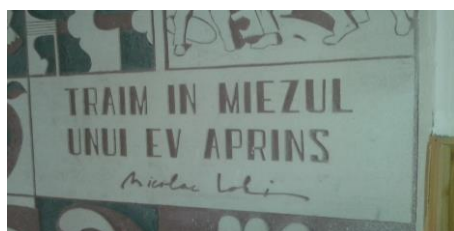 TRAIM IN MIEZUL
UNUI EV APRINS
Nicolae Labiș